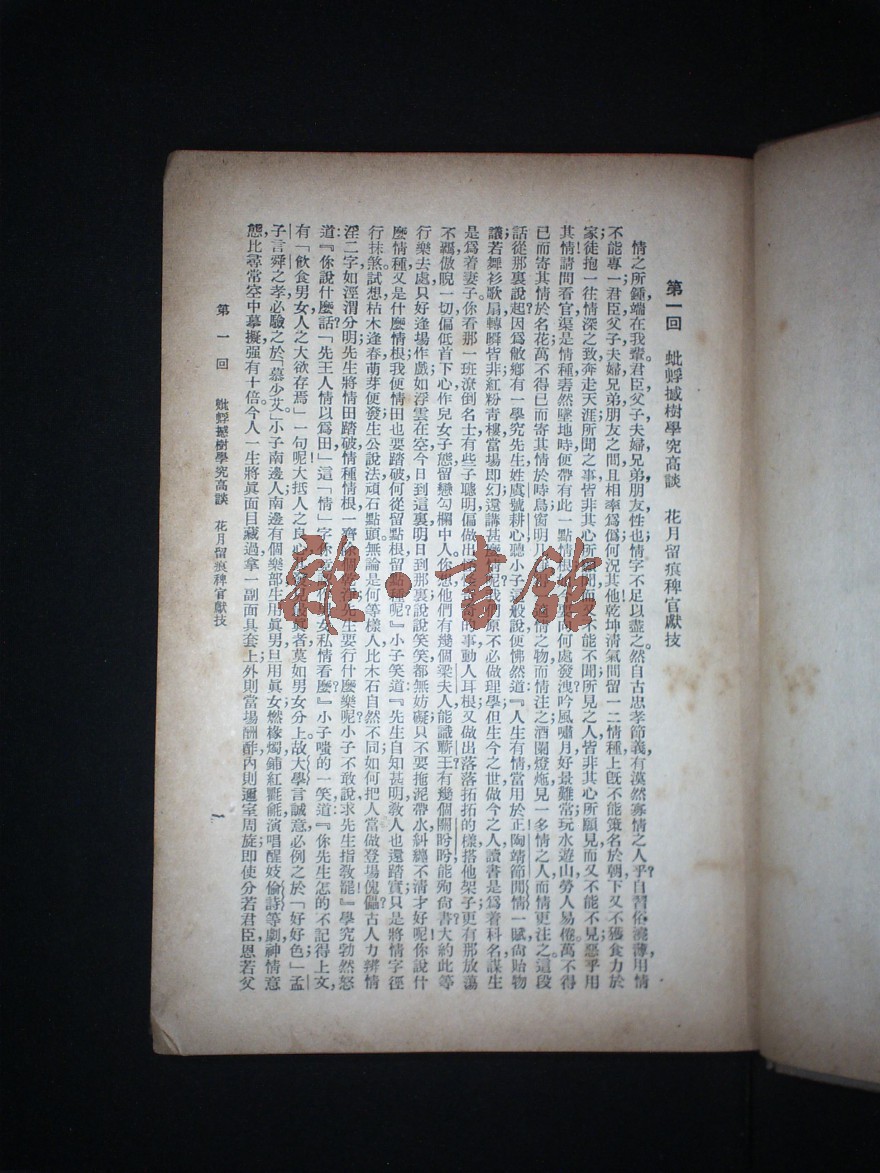 第一回　蚍蜉撼樹學究高談　花月留痕稗官獻技
情之所鍾端在我輩。君臣父子夫婦兄弟朋友性也情字不足以盡之。然自古忠孝節義有漠然寡情之人乎？自習俗澆薄用情
不能專一君臣父子夫婦兄弟朋友之間且相率爲僞何況其他！乾坤清氣間留一二情種上既不能策名於朝下又不獲食力於
家徒抱一往情深之致奔走天涯所聞之事皆非其心所願聞而又不能不聞所見之人皆非其心所願見而又不能不見惡乎用
其情請問看官渠是情種砉然墜地時便帶有此一點情根向何處發洩吟風嘯月好景難常玩水遊山勞人易倦。萬不得
已而寄其情於名花萬不得已而寄其情於時鳥窗明几情之物而情注之酒闌燈灺見一多情之人而情更注之。這段
話從那裏說起因爲敝鄉有一學究先生姓虞號耕心聽小子這般說便怫然道『人生有情當用於正陶靖節閒情一賦尚貽物
議若舞衫歌扇轉瞬皆非紅粉青樓當場即幻還講甚麼呢我原不必做理學但生今之世做今之人讀書是爲着科名謀生
是爲着妻子你看那一班潦倒名士有些子聰明偏做出的事動人耳根又做出落落拓拓的樣搭他架子更有那放蕩
不羈傲睨一切偏低首下心作兒女子態留戀勾欄中人你他們有幾個梁夫人能識蘄王有幾個關盼盼能殉尚書大約此等
行樂去處只好逢場作戲如浮雲在空今日到這裏明日到那裏說說笑笑都無妨礙只不要拖泥帶水糾纏不清才好呢你說什
麼情種又是什麼情根我便情田也要踏破何從留點根留點種呢』小子笑道『先生自知甚明教人也還踏實只是將情字徑
行抹煞試想枯木逢春萌芽便發生公說法頑石點頭。無論是何等樣人比木石自然不同如何把人當做登場傀儡古人力辨情
淫二字如涇渭分明先生將情田踏破情種情根一齊先生要行什麼樂呢小子不敢說求先生指教罷』學究勃然怒
道『你說什麼話「先王人情以爲田」這「情」字你女私情看麼』小子嗤的一笑道『你先生怎的不記得上文
有「飲食男女人之大欲存焉」一句呢大抵人之良心眞者莫如男女分上。故大學言誠意必例之於「好好色」孟
子言舜之孝必驗之於「慕少艾」小子南邊人南邊有個樂部生用眞男旦用眞女燃椽燭鋪紅氍毹演唱醒妓偷詩等劇神情意
態比尋常空中摹擬强有十倍。今人一生將眞面目藏過拿一副面具套上外則當場酬酢內則邇室周旋即使分若君臣恩若父
第一回　蚍蜉撼樹學究高談　花月留痕稗官獻技
一
雜·書館